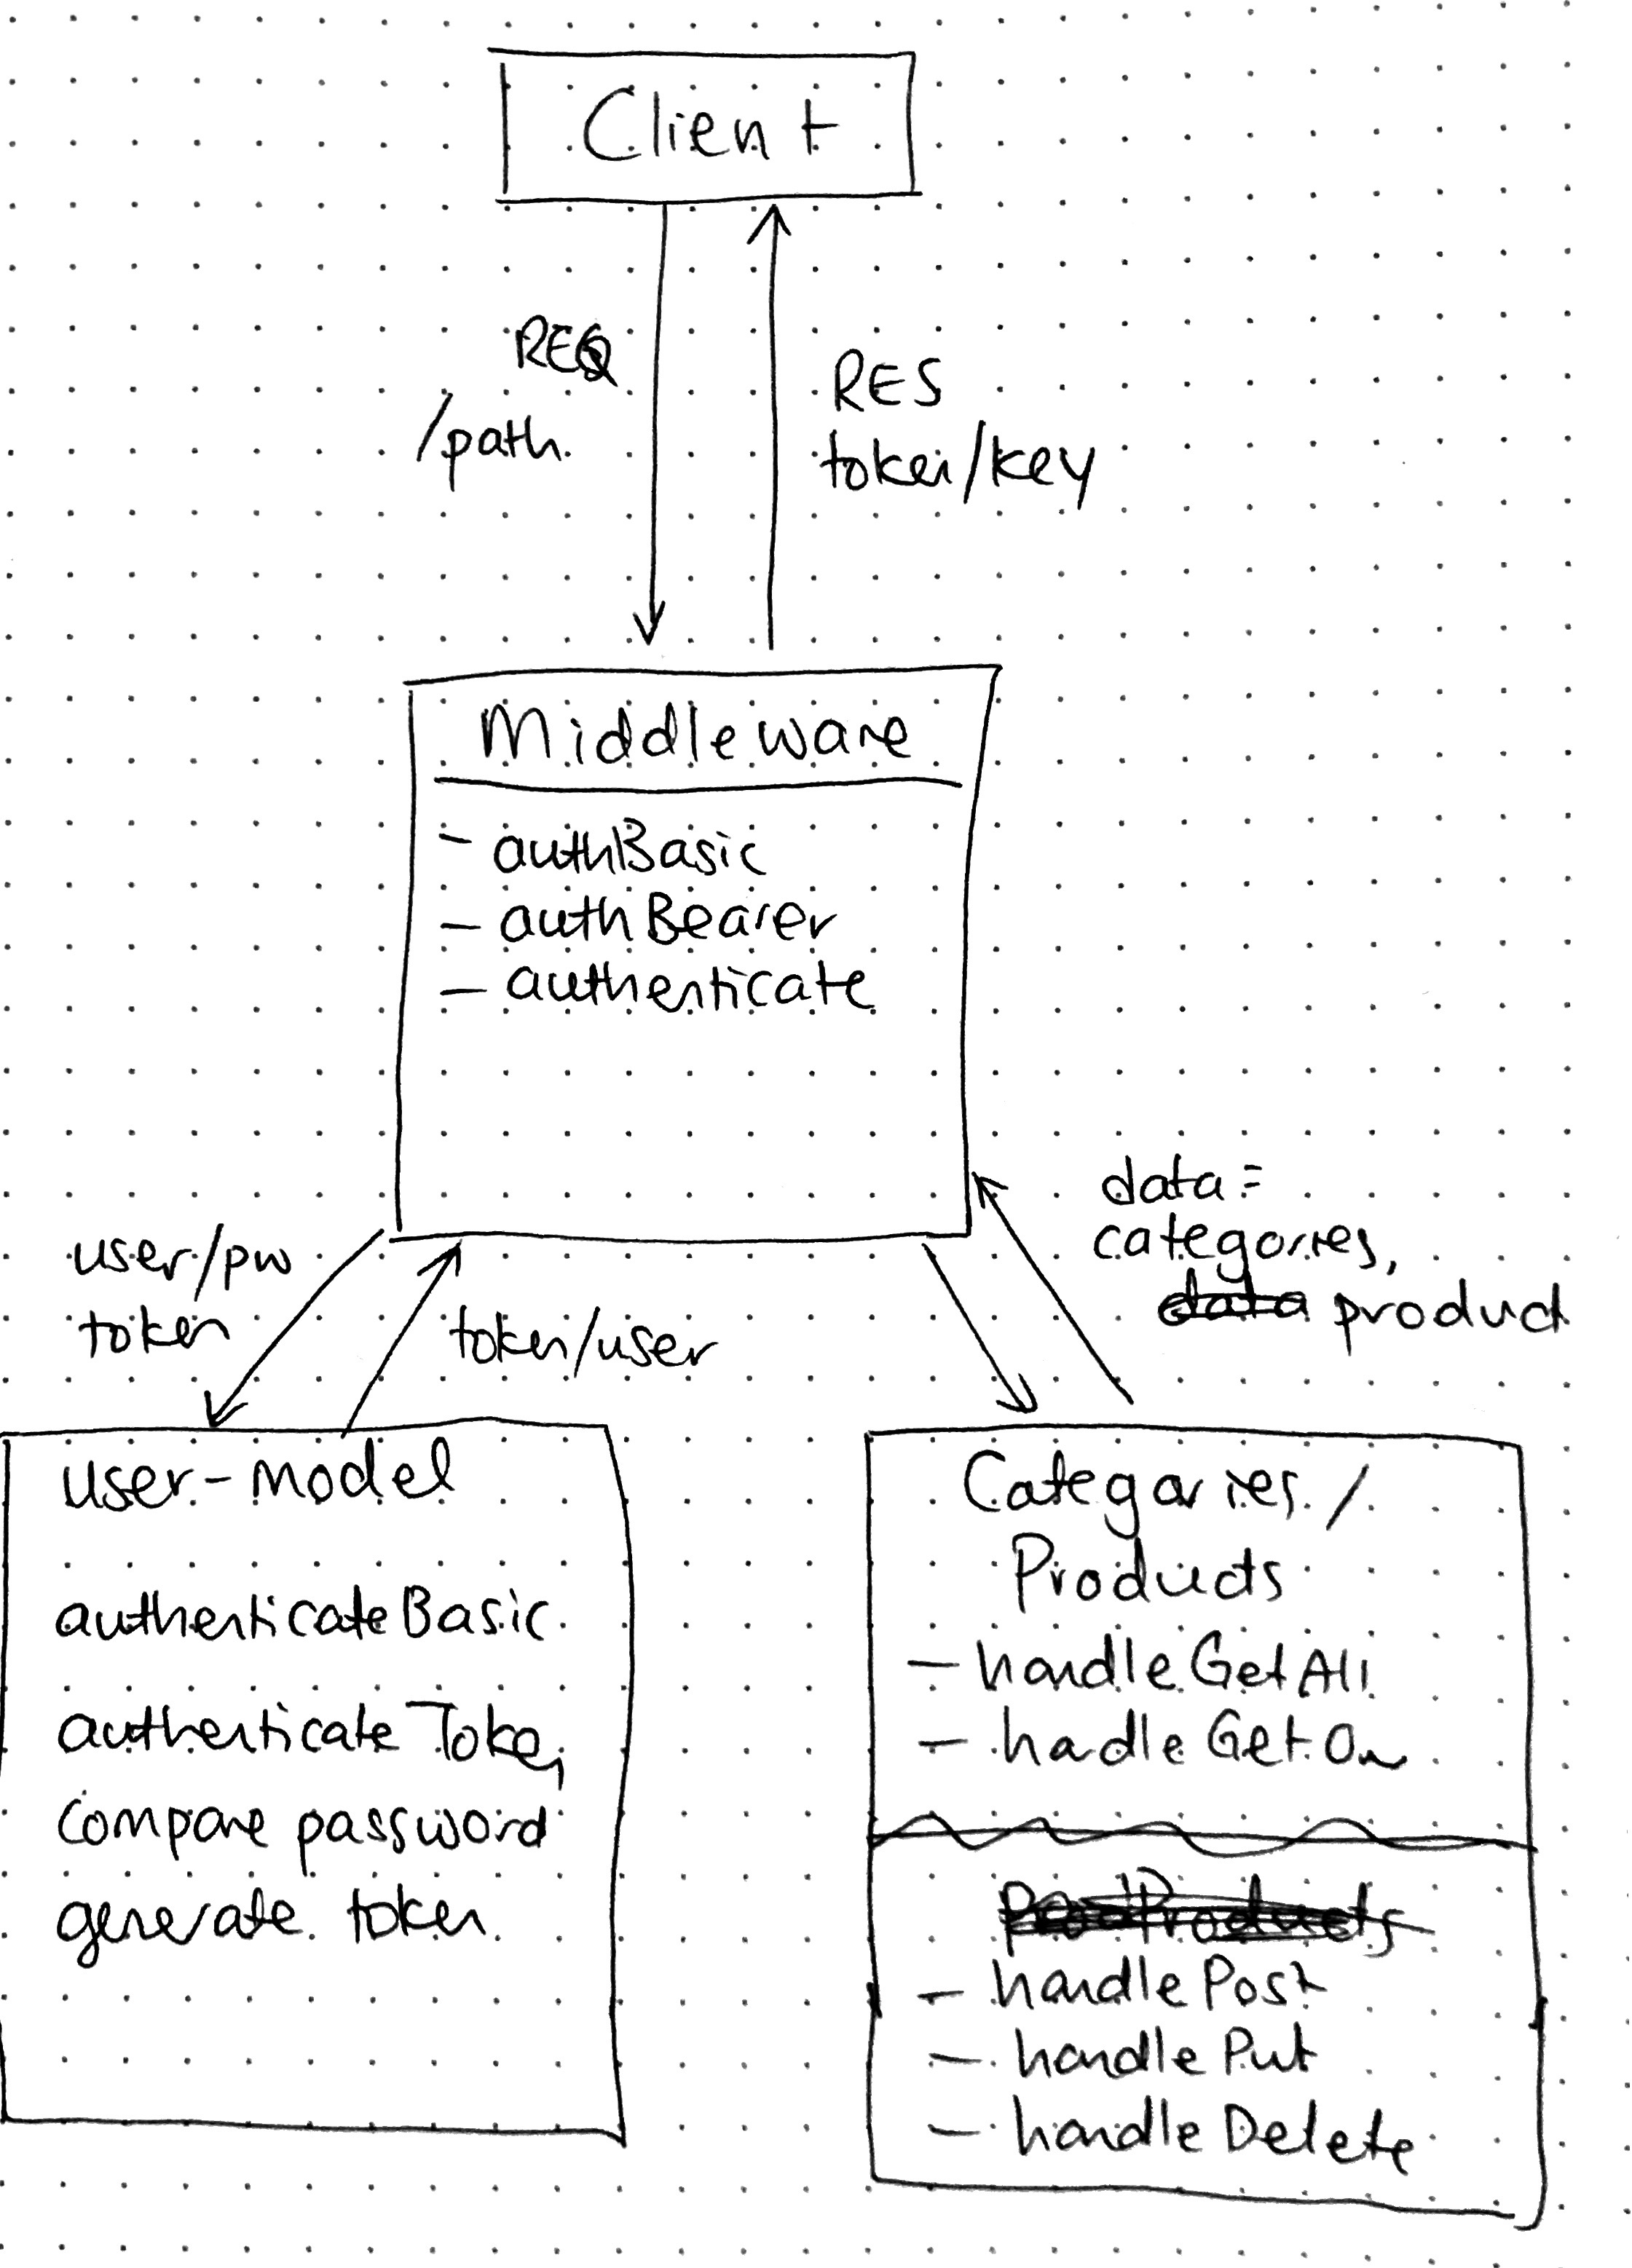 Client
REQ
/path
RES
token/key
Middleware
- authBasic
- authBearer
- authenticate
user/pw
token
token/user
data =
categories,
product
user-model
authenticateBasic
authenticate Token
compare password
generate token
Categories /
Products
- handleGetAll
- hadleGetOn
- handlePost
- handle Put
- handle Delete